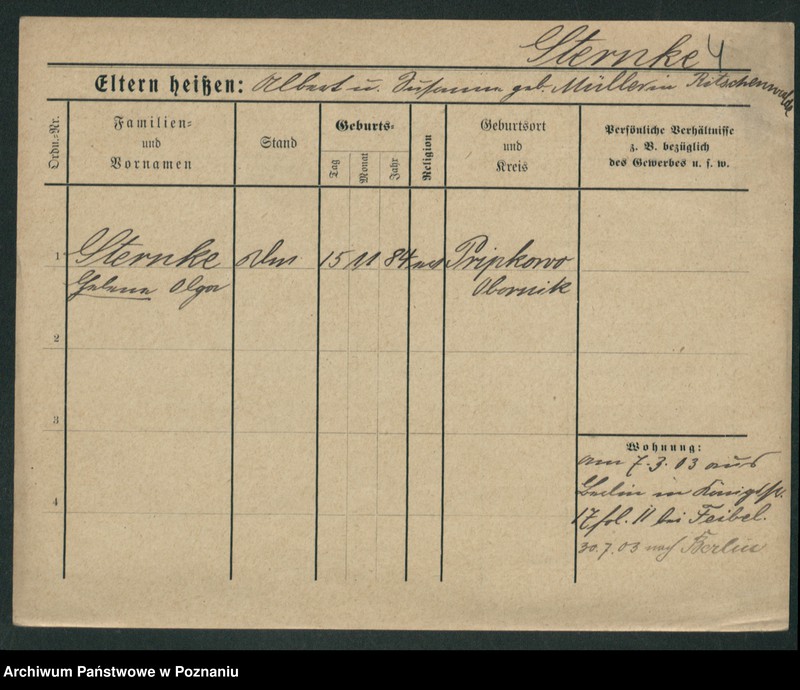 Sternke 4
Eltern heißen: Albert u. Susanna geb. Müller in Ritschenwalde
Ordn.-Nr.
Familien-
und
Vornamen
Stand
Geburts-
Tag
Monat
Jahr
Religion
Geburtsort
und
Kreis
Persönliche Verhältnisse
z. B. bezüglich
des Gewerbes u. s. w.
1 Sternke 15 11 84 Pripkowo
Helena Olga Obornik
2
3
4
Wohnung:
am 7.3.03 aus
Berlin in Königstr.
17 fol. 11 bei Feibel.
30.7.03 nach Berlin
Archiwum Państwowe w Poznaniu